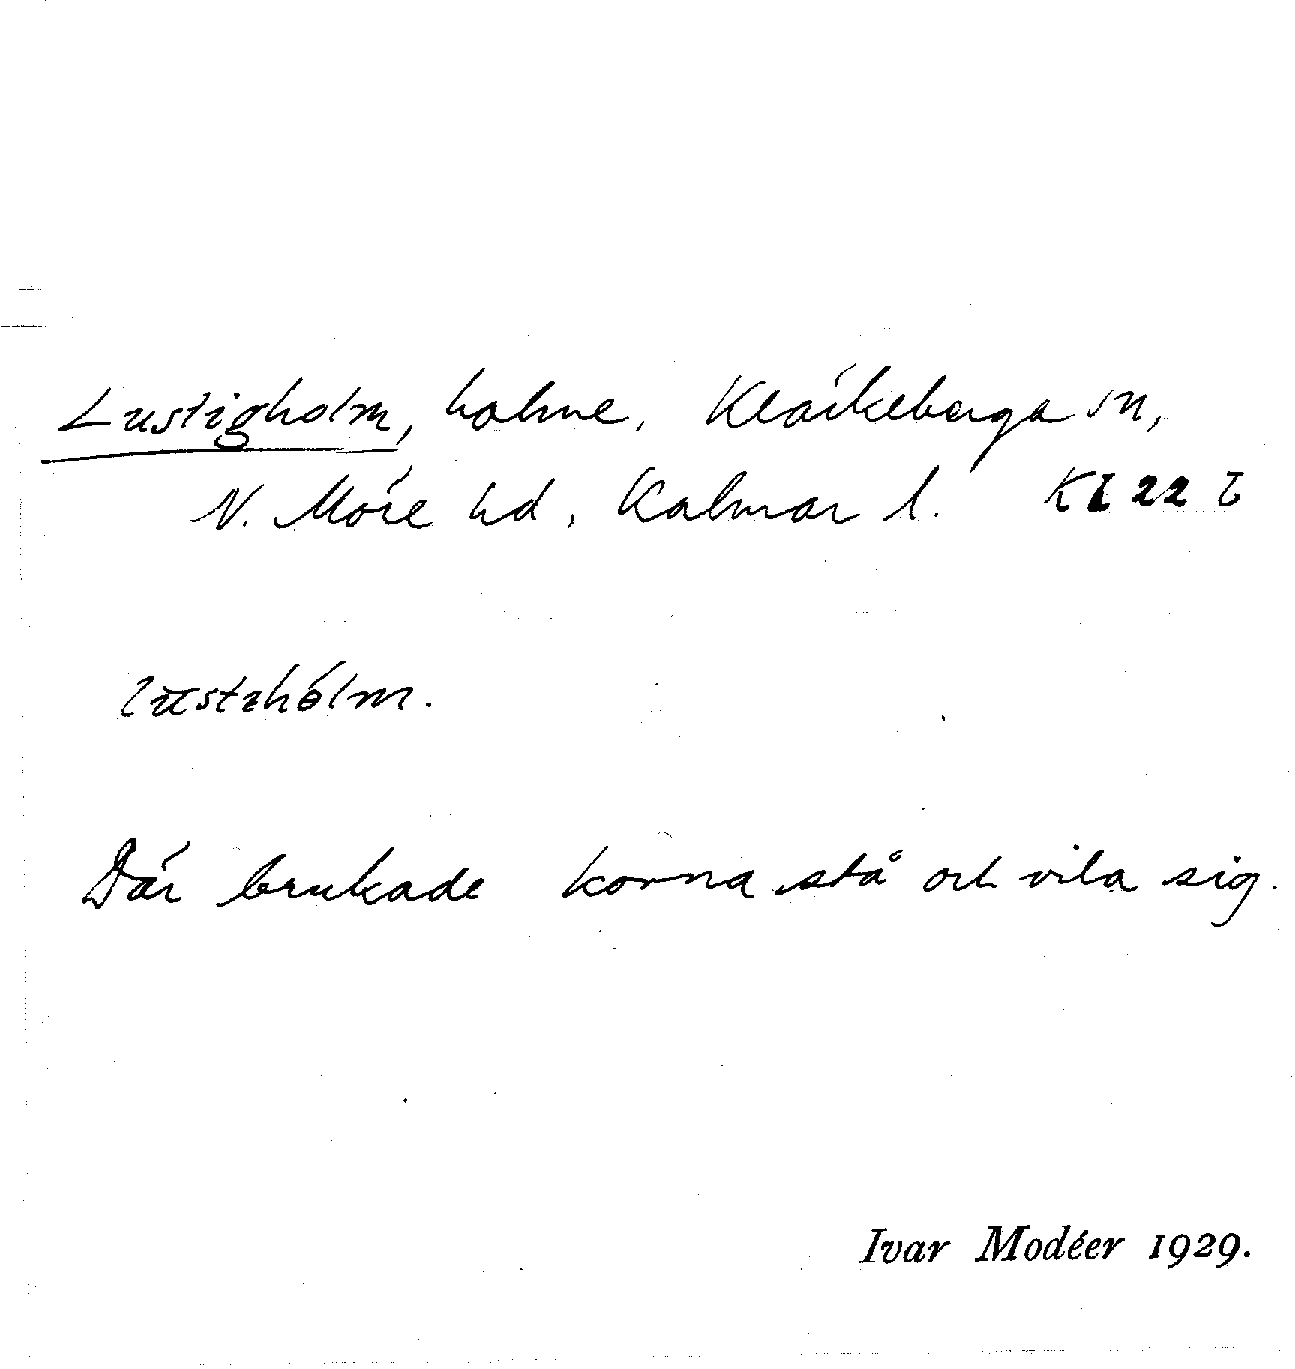 Lustigholm, holme, Kläckeberga sn,
N. Möre hd, Kalmar l.
Där brukade korna stå och vila sig.
Ivar Modéer 1929.